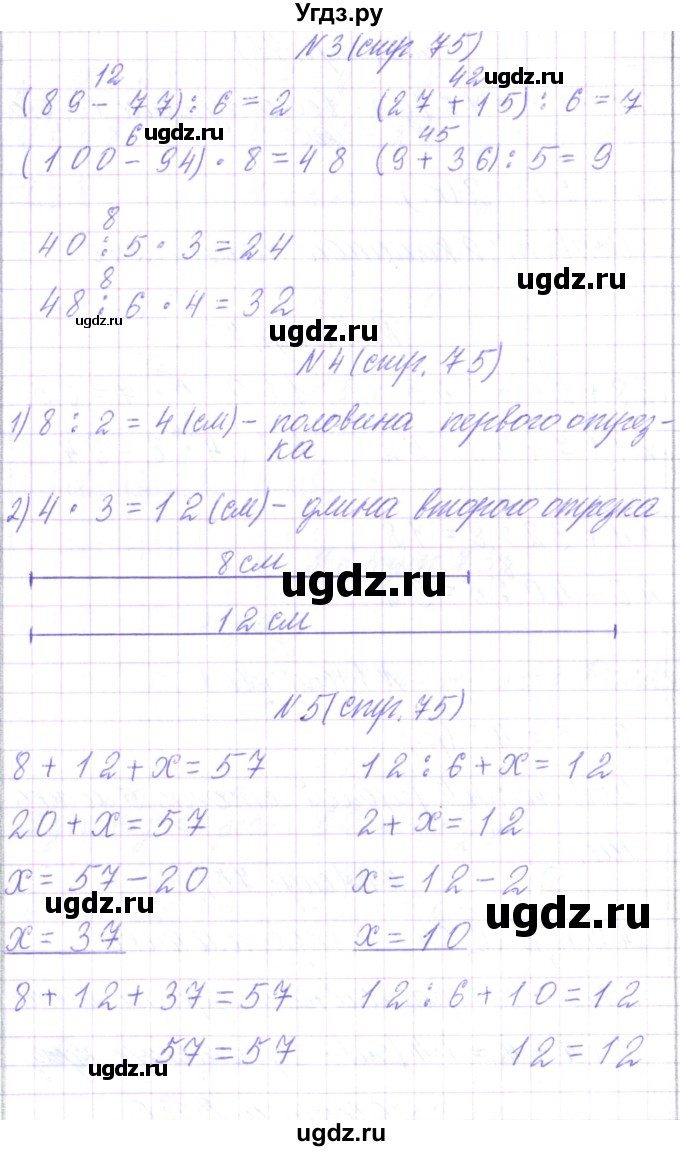 Угдз.ру
N 3 (стр. 75)
12 42 ugdz.ru
(89 - 77) : 6 = 2 (27 + 15) : 6 = 7
6 ugdz.ru 45
(100 - 94) · 8 = 48 (9 + 36) : 5 = 9
8
40 : 5 · 3 = 24
8 ugdz.ru
48 : 6 · 4 = 32
ugdz.ru ugdz.ru
N 4 (стр. 75)
1) 8 : 2 = 4 (см) - половина первого отрез-
ка
2) 4 · 3 = 12 (см) - длина второго отрезка
8 см
ugdz.ru
12 см
N 5 (стр. 75)
8 + 12 + x = 57 12 : 6 + x = 12
20 + x = 57 2 + x = 12
x = 57 - 20 x = 12 - 2
ugdz.ru ugdz.ru
x = 37 x = 10
8 + 12 + 37 = 57 12 : 6 + 10 = 12
57 = 57 12 = 12
ugdz.ru
ugdz.ru